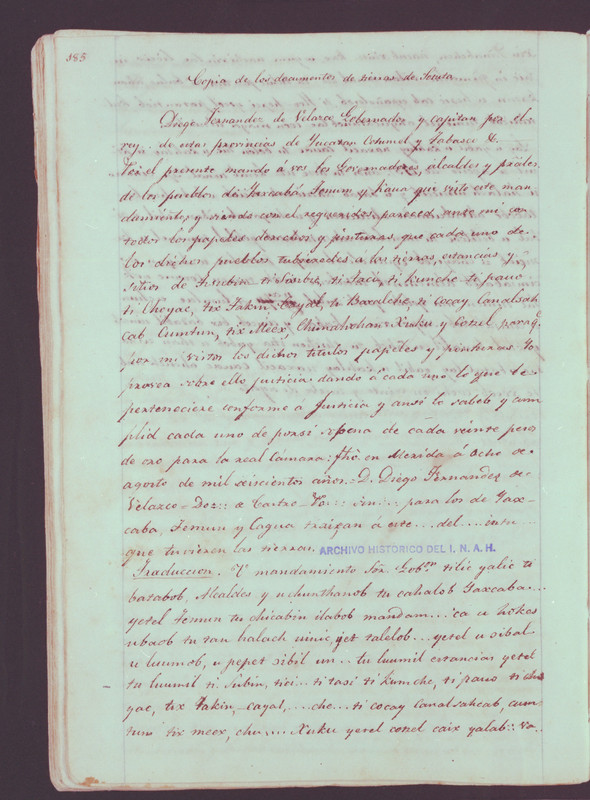 185
Copia de los documentos de tierras de Sotuta
Diego Fernandez de Velasco Gobernador y capitan por el
rey . de estas provincias de Yucatan Cotumel y Tabasco &.
Por el presente mando á vos los Governadores, alcaldes y prâles
de los pueblos de Yaxcabá, Temum y Kaua que visto este man
damiento, y siendo con el requeridos parezcd. ante mi con
todos los papeles derechos y pinturas que cada uno de
los dichos pueblos tubieredes a las tierras, estancias y
sitios de ti ti Tzaci, ti Kumche ti pauo
ti Cheyac, tix Takin, Cayal ti Baxalche, ti Cocay Canalsah
cab Cumtun, tix Meex, Xuku y Conel paraq.
por mi vistos los dichos titulos papeles y pinturas Yo
provea sobre ello justicia, dando á cada uno lo que le
perteneciere conforme a Justicia y ansi lo sabed y cum
plid cada uno de por si so pena de cada veinte peso
de oro para la real Cámara: fhô. en Merida á Ocho de
agosto de mil seiscientos años.- D. Diego Fernandez de
Velazco - Dor:: e Castro - Yo:::: para los de Yax-
caba, Temum y Cagua traigan á este ... del ...
que tuvieren las tierras.
ARCHIVO HISTORICO DEL I. N. A. H.
Traduccion. U mandamiento Sôr. Gobor. tilic yalic ti
batabob, Alcaldes y u chunthanob tu cahalob Yaxcaba...
yetel Temum tu chicabin ilabob mandam... ca u hokes
ubaob tu tan halach uinic, yet talelob... yetel u sibal
u luumob, u pepet sibil un.. tu luumil estancias yetel
tu luumil ti Subin, tici.. ti tasi ti Kumche, ti pauo ti che
yac, tix Takin, cayal, .... che.. ti cocay canalsahcab, cum
tun tix meex, chu.... Xuku yetel conel caix yalab:: va..